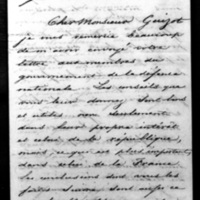 Cher Monsieur Guizot
je vous remercie beaucoup
de m'avoir envoyé votre
lettre aux membres du
gouvernement de la défense
nationale. Les conseils que
vous leur donnez sont bons
et utiles non seulement
dans leur propre intérêt
et celui de la république,
mais ce qui est plus important,
dans celui de la France.